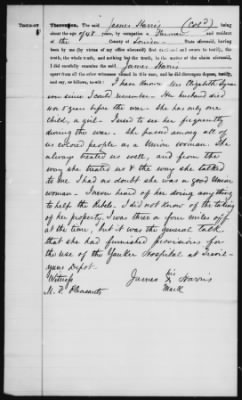 Testimony
Thereupon, The said James Harris (Col'd) being
about the age of 48 years, by occupation a Farmer and resident
of the County of Louisa State aforesaid, having
been by me (by virtue of my office aforesaid) first cautioned and sworn to testify, the
truth, the whole truth, and nothing but the truth, in the matter of the claim aforesaid,
I did carefully examine the said James Harris
apart from all the other witnesses named in this case, and he did thereupon depose, testify,
and say, as follows, to-wit: I have known Mrs Elizabeth
son since I could remember. Her husband died
years before the war. She has only one
child, a girl. I used to see her frequently
during the war. She passed among all of
us colored people as a Union woman. She
always treated us well, and from the
way she treated us & the way she talked
to me I had no doubt she was a good Union
woman. I never heard of her doing anything
to help the Rebels. I did not know of the taking
of her property. I was three or four miles off
at the time, but it was the general talk
that she had furnished provisions for
the use of the Yankee Hospital at
Depot.
Witness
M. F. Pleasants
James his X mark Harris